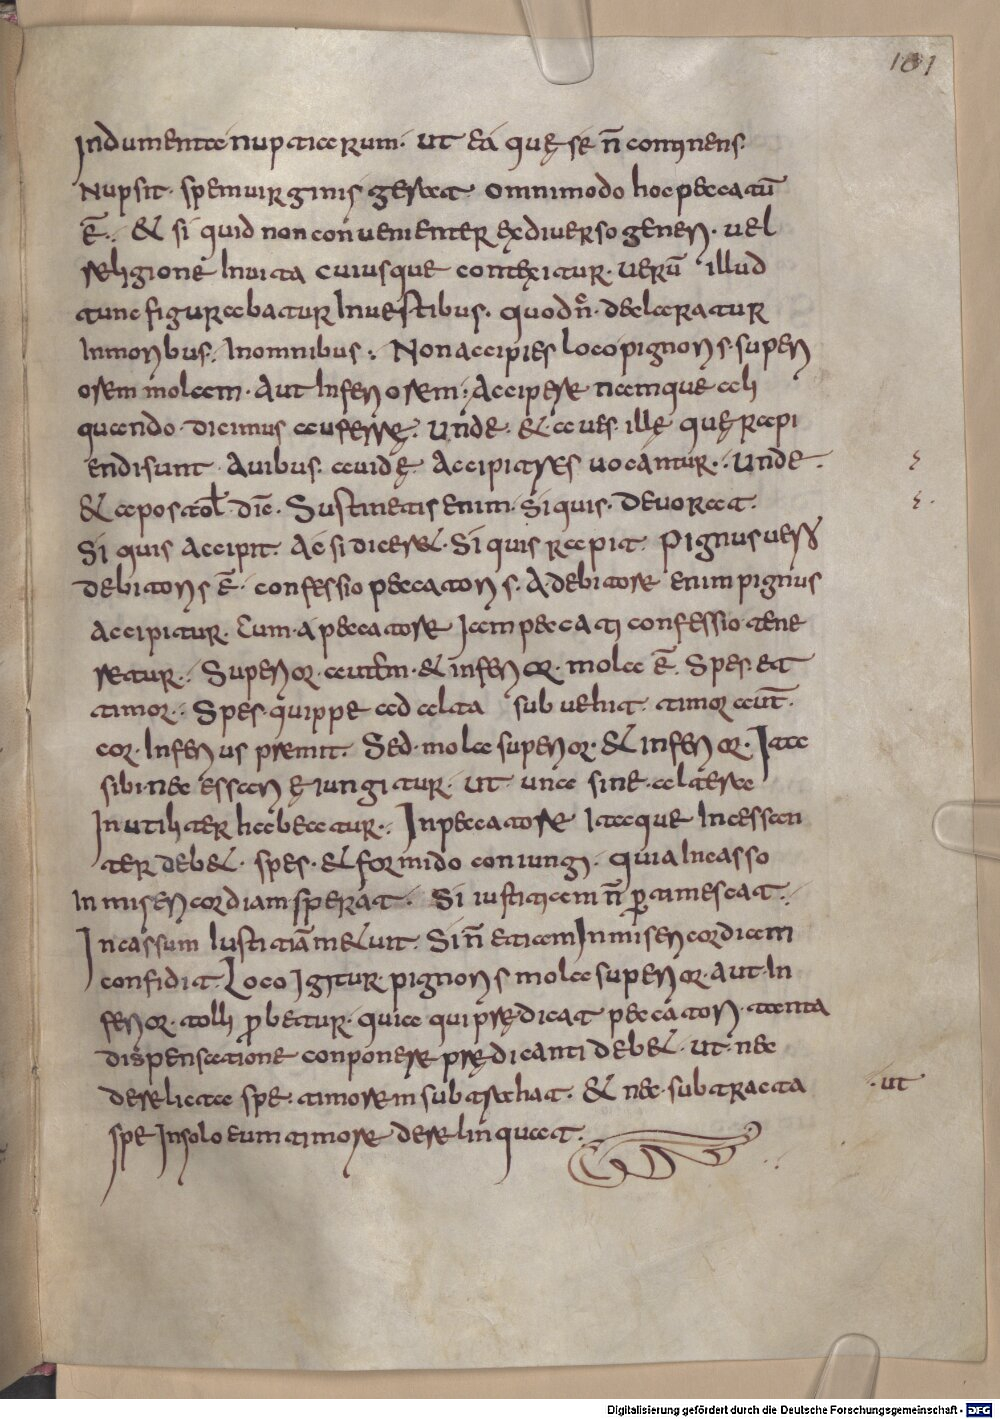 181
Indumenta nuptiarum· ut ea quę se n̄ continens·
Nupsit· spem uirginis gerat· omnimodo hoc peccatū
Ē·: & si quid non conuenienter ex diuerso generi· uel
religione Inuita cuiusque contexitur· uerū illud
tunc figurabatur Inuestibus· quod n̄· declaratur
Inmoribus·: Inomnibus·: Non accipies loco pignoris· superi
orem molam· Aut Inferiorem·: Accipere namque ali
quando· dicimus auferre· Unde· & aues· illę quę rapi
endi sunt· Auibus· auidę Accipitres uocantur·: Unde·
& apostol· dic̄· Sustinetis enim· Si quis· Deuorat·
Si quis Accipit· Ac si diceret· Si quis rapit· Pignus uero
debitoris ē· confessio peccatoris· A debitore enim pignus
Accipitur· Cum· a peccatore Iam peccati confessio tene
retur·: Superior· autem· & inferior· mola ē· Spes· et
timor·: Spes· quippe ad alta sub uehit· timor aut̄·
cor· Inferius premit· Sed· mola superior· & inferior· Ita
sibi· necessari ę iungitur· ut una sine· altera
Inutiliter habeatur·: In peccatore Itaque Incessan
ter debet· spes· & formido coniungi· quia Incasso
In misericordiam· sperat· Si iustitiam n̄ ptimescat·:
Incassum Iustitiā metuit· Si n̄ etiam In misericordiam
confidit· Loco Igitur· pignoris mola superior· aut· In
ferior· tolli probetur· quia qui prędicat peccatori· tanta
dispensatione conponere prędicanti debet· ut· nec
derelicta spe· timorem subtrahat· & nec· subtracta
·ut
spe Insolo eum timore derelinquat·
Digitalisierung gefördert durch die Deutsche Forschungsgemeinschaft - DFG